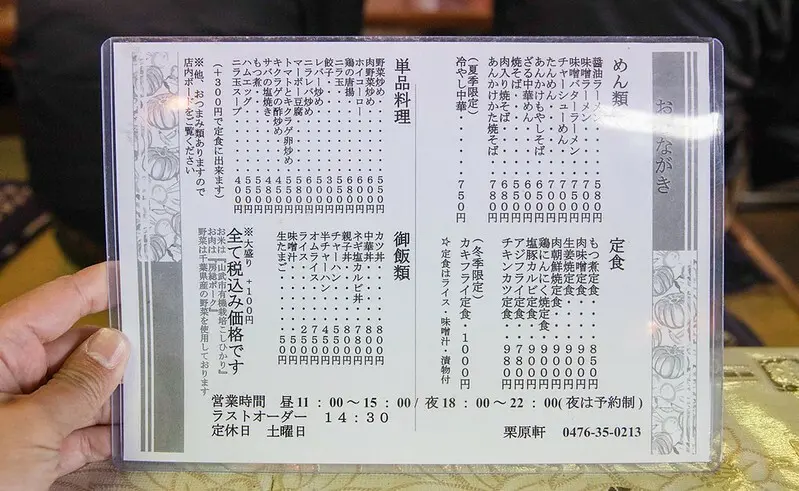 おしながき
めん類
醤油ラーメン・・・500円
味噌ラーメン・・・700円
味噌バターラーメン・750円
チャーシューめん・・750円
たんめん・・・700円
あんかけもやしそば・700円
ざる中華めん・・・600円
焼そば・・・550円
肉入り焼そば・・・680円
あんかけかた焼そば・780円
(夏季限定)
冷やし中華・・・750円
定食
もつ煮定食・・・850円
肉味噌定食・・・円
生姜焼定食・・・980円
肉朝鮮焼定食・・・980円
鶏にんにく焼定食・900円
塩豚カルビ定食・・900円
アジフライ定食・・円
チキンカツ定食・・980円
(冬季限定)
カキフライ定食・1000円
☆定食はライス・味噌汁・漬物付
単品料理
野菜炒め・・・550円
肉野菜炒め・・・600円
ホイコーロー・・・600円
鶏の唐揚・・・680円
ニラ玉・・・円
餃子・・・300円
レバー炒め・・・500円
ニラレバ炒め・・・600円
マーボー豆腐・・・580円
トマトとキクラゲ卵炒め・650円
キクラゲの酢炒め・・550円
サバの塩焼き・・・480円
もつ煮・・・450円
ハムエッグ・・・円
ニラ玉スープ・・・400円
(+300円で定食に出来ます)
※他、おつまみ類ありますので
店内ボードをご覧ください
御飯類
カツ丼・・・800円
中華丼・・・800円
ネギ塩カルビ丼・・880円
親子丼・・・780円
チャーハン・・・550円
半チャーハン・・・450円
オムライス・・・750円
ライス・・・250円
味噌汁・・・50円
生たまご・・・50円
※大盛り +100円
全て税込み価格です
お米は『山武市有機栽培こしひかり』
お肉は『房総ポーク』
野菜は千葉県産の野菜を使用しております
営業時間 昼11:00〜15:00/夜18:00〜22:00(夜は予約制)
ラストオーダー 14:30
定休日 土曜日
栗原軒 0476-35-0213